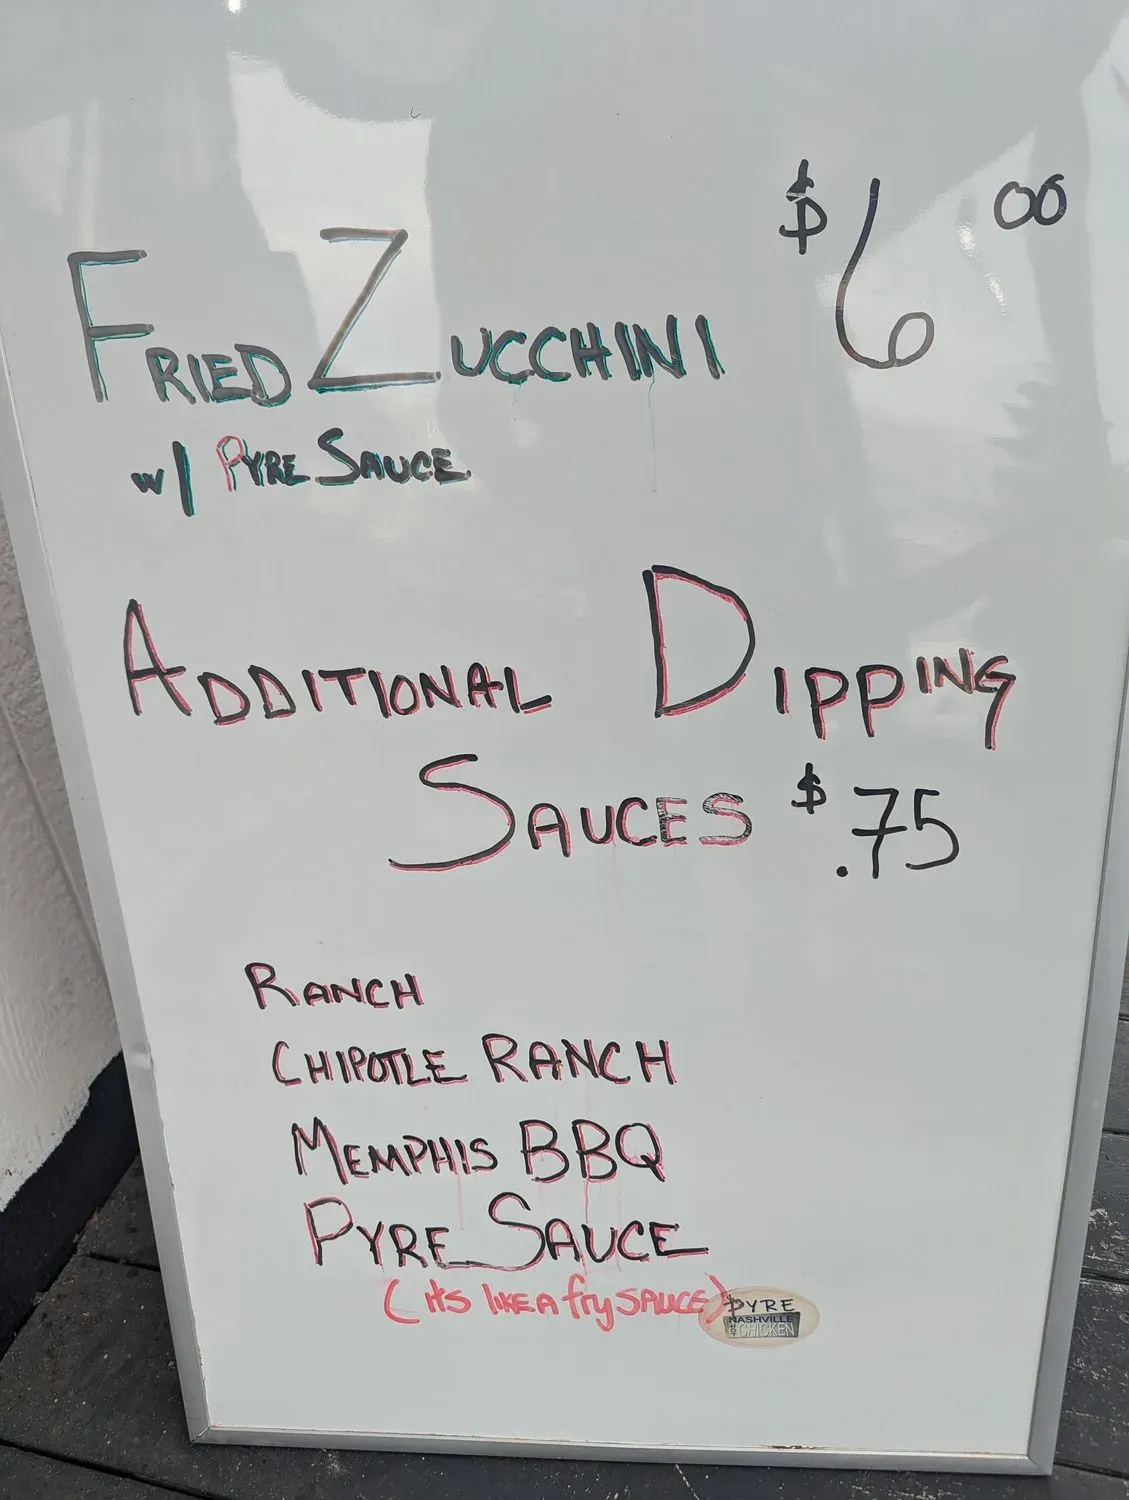 FRIED ZUCCHINI $6.00
w/ PYRE SAUCE
ADDITIONAL DIPPING
SAUCES $.75
RANCH
CHIPOTLE RANCH
MEMPHIS BBQ
PYRE SAUCE
(it's like a fry sauce)
PYRE
NASHVILLE
HOT CHICKEN